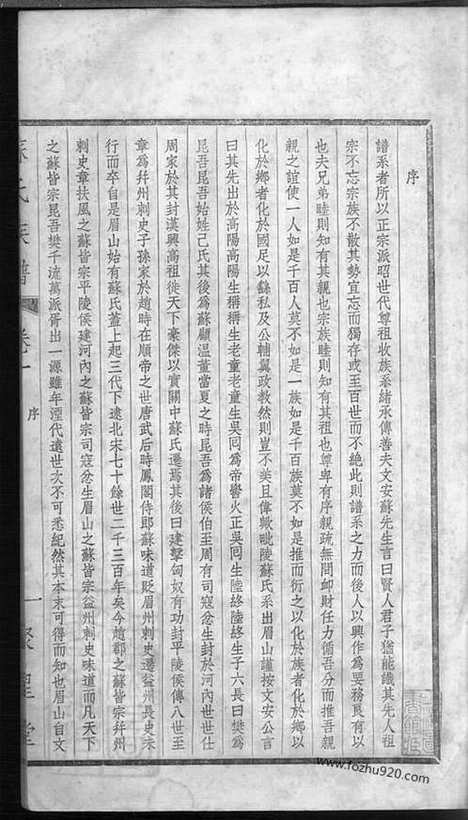 序
譜系者所以正宗派昭世代尊祖收族系緒承傳善夫文安蘇先生言曰賢人君子猶能識其先人祖
宗不忘宗族不散其勢宜忘而獨存或至百世而不絶此則譜系之力而後人以興作為要務良有以
也夫兄弟睦則知有其親也宗族睦則知有其祖也尊卑有序親疏無間卹財任力循吾分而推吾親
親之誼使一人如是千百人莫不如是一族如是千百族莫不如是推而衍之以化於族者化於鄉以
化於鄉者化於國足以繇私及公輔翼政教然則豈不美且偉歟毗陵蘇氏系出眉山謹按文安公言
曰其先出於高陽高陽生稱稱生老童老童生吳囘為帝嚳火正吳囘生陸終陸終生子六長曰樊為
昆吾昆吾始姓己氏其後為蘇顧溫董當夏之時昆吾為諸侯伯至周有司寇忿生封於河內世世仕
周家於其封漢興高祖徙天下豪傑以實關中蘇氏遷焉其後曰建擊匈奴有功封平陵侯傳八世至
章為并州刺史子孫家於趙時在順帝之世唐武后時鳳閣侍郎蘇味道貶眉州刺史遷益州長史未
行而卒自是眉山始有蘇氏蓋上起三代下逮北宋七十餘世二千三百年矣今趙郡之蘇皆宗并州
刺史章扶風之蘇皆宗平陵侯建河內之蘇皆宗司寇忿生眉山之蘇皆宗益州刺史味道而凡天下
之蘇皆宗昆吾樊千流萬派胥出一源雖年湮代遺世次不可悉紀然其本末可得而知也眉山自文
蘇氏族譜 卷一 序 一 聚星堂
www.fozhu920.com